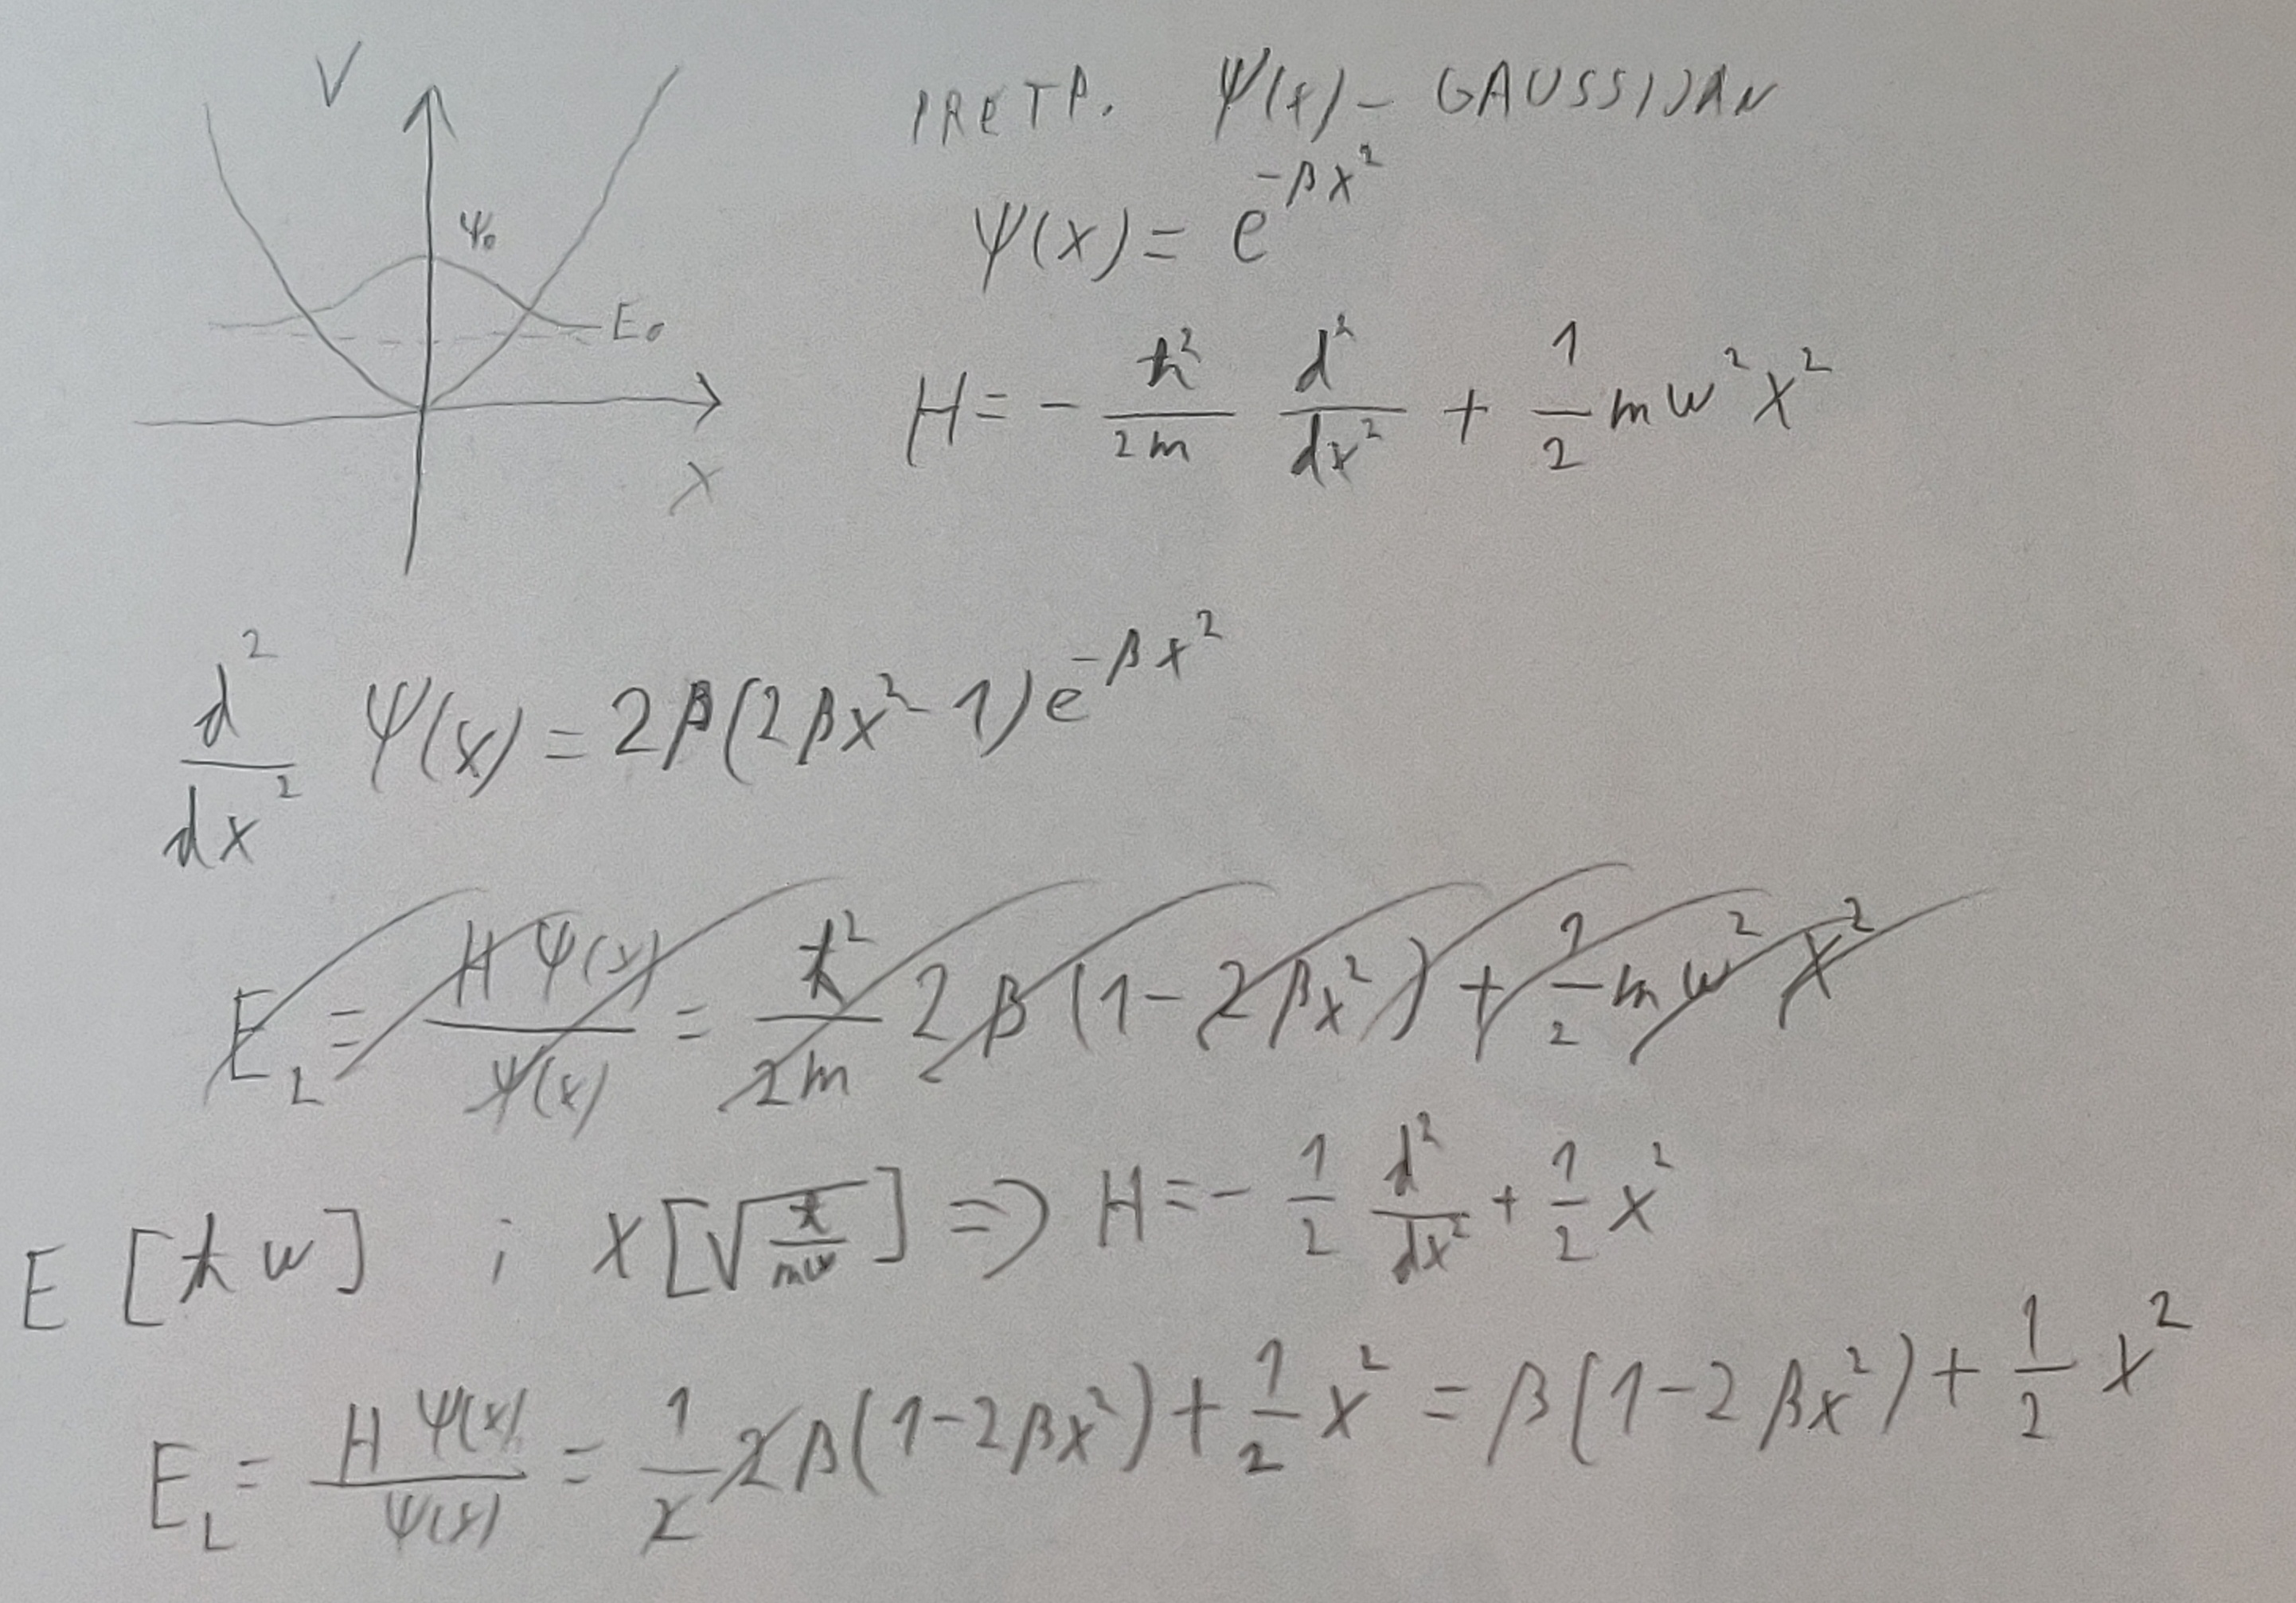 V
PRETP. Ψ(x) – GAUSSIJAN
Ψ(x) = e^{-βx²}
Ψ₀
E₀
H = - ℏ²/2m d²/dx² + 1/2 mω²x²
X
d²/dx² Ψ(x) = 2β(2βx² - 1)e^{-βx²}
E_L = HΨ(x)/Ψ(x) = ℏ²/2m 2β(1 - 2βx²) + 1/2 mω² x²
E [ℏω] i X[√(ℏ/mω)] ⇒ H = - 1/2 d²/dx² + 1/2 x²
E_L = HΨ(x)/Ψ(x) = 1/2 2β(1 - 2βx²) + 1/2 x² = β(1 - 2βx²) + 1/2 x²